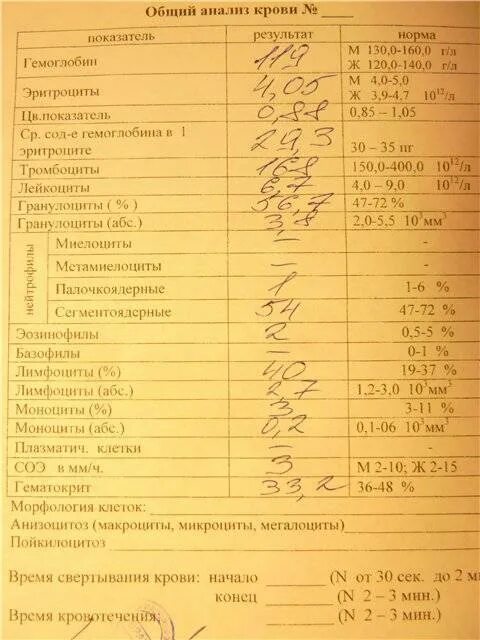 Общий анализ крови № ____
показатель результат норма
Гемоглобин 119 М 130,0-160,0 г/л
Ж 120,0-140,0 г/л
Эритроциты 4,05 М 4,0-5,0
Ж 3,9-4,7 10¹²/л
Цв.показатель 0,88 0,85 – 1,05
Ср. сод-е гемоглобина в 1
эритроците 29,3 30 – 35 пг
Тромбоциты 168 150,0-400,0 10¹²/л
Лейкоциты 6,7 4,0 – 9,0 10¹²/л
Гранулоциты ( % ) 56,7 47-72 %
Гранулоциты (абс.) 3,8 2,0-5,5 10³мм³
нейтрофилы
Миелоциты – -
Метамиелоциты – -
Палочкоядерные 1 1-6 %
Сегментоядерные 54 47-72 %
Эозинофилы 2 0,5-5 %
Базофилы – 0-1 %
Лимфоциты (%) 40 19-37 %
Лимфоциты (абс.) 2,7 1,2-3,0 10³мм³
Моноциты (%) 3 3-11 %
Моноциты (абс.) 0,2 0,1-06 10³мм³
Плазматич. клетки – -
СОЭ в мм/ч. 3 М 2-10; Ж 2-15
Гематокрит 33,2 36-48 %
Морфология клеток:
Анизоцитоз (макроциты, микроциты, мегалоциты)
Пойкилоцитоз
Время свертывания крови: начало ______ (N от 30 сек. до 2 ми
конец ______ (N 2 – 3 мин.)
Время кровотечения: ______ (N 2 – 3 мин.)